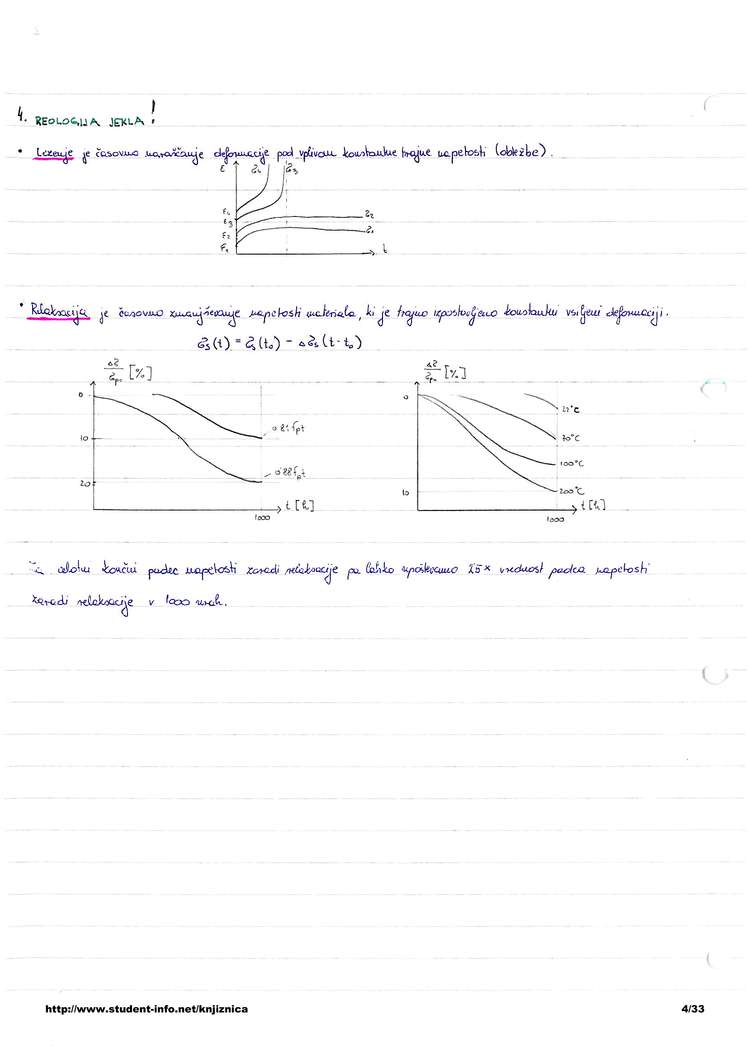 4. REOLOGIJA JEKLA!
• Lezenje je časovno naraščanje deformacije pod vplivom konstantne trajne napetosti (obtežbe).
ε σ4 σ3
ε4
ε3
ε2
ε1
σ2
σ1
t
• Relaksacija je časovno zmanjševanje napetosti materiala, ki je trajno izpostavljeno konstantni vsiljeni deformaciji.
σs(t) = σs(t0) - Δσs(t-t0)
Δσ/σp0 [%]
0
10
20
0.81 fpt
0.88 fpt
t [h]
1000
Δσ/σp0 [%]
0
10
70°C
100°C
200°C
t [h]
1000
celotni končni padec napetosti zaradi relaksacije pa lahko upoštevamo 2.5× vrednost padca napetosti
zaradi relaksacije v 1000 urah.
http://www.student-info.net/knjiznica
4/33